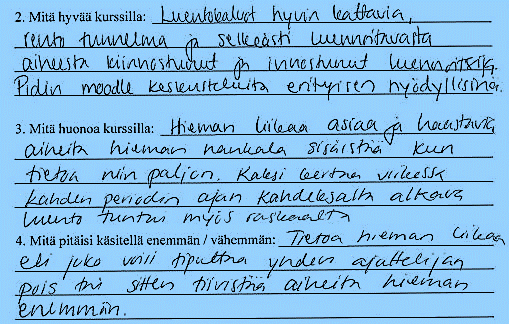 2. Mitä hyvää kurssilla: Luentokalvot hyvin kattavia,
rento tunnelma ja selkeästi luennoitavasta
aiheesta kiinnostunut ja innostunut luennoitsija.
Pidin moodle keskusteluita erityisen hyödyllisinä.
3. Mitä huonoa kurssilla: Hieman liikaa asiaa ja haastavia
aiheita hieman hankala sisäistää kun
tietoa niin paljon. Kaksi kertaa viikossa
kahden periodin ajan kahdeksalta alkava
luento tuntuu myös raskaalta
4. Mitä pitäisi käsitellä enemmän / vähemmän: Tietoa hieman liikaa
eli joko voisi tiputtaa yhden ajattelijan
pois tai sitten tiivistää aiheita hieman
enemmän.